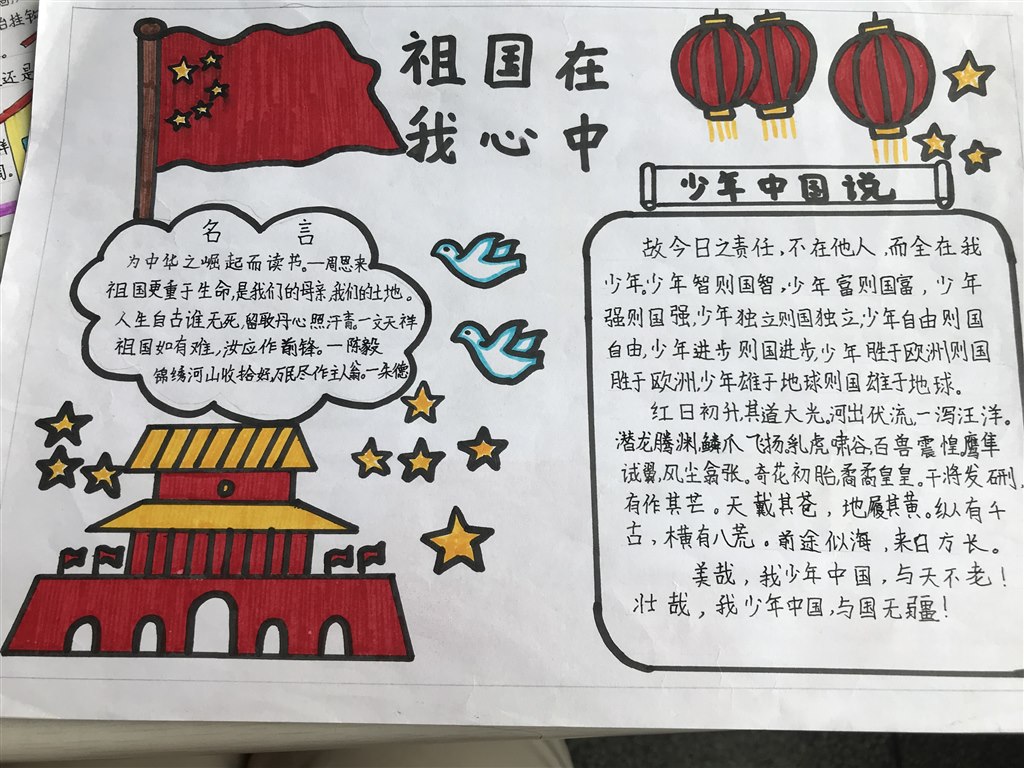 祖国在
我心中
名言
为中华之崛起而读书。—周恩来
祖国更重于生命,是我们的母亲,我们的土地。
人生自古谁无死,留取丹心照汗青。—文天祥
祖国如有难,汝应作前锋。—陈毅
锦绣河山收拾好,万民尽作主人翁。—朱德
少年中国说
故今日之责任,不在他人,而全在我
少年。少年智则国智,少年富则国富,少年
强则国强,少年独立则国独立,少年自由则国
自由,少年进步则国进步,少年胜于欧洲则国
胜于欧洲,少年雄于地球则国雄于地球。
红日初升,其道大光。河出伏流,一泻汪洋。
潜龙腾渊,鳞爪飞扬,乳虎啸谷,百兽震惶,鹰隼
试翼,风尘翕张。奇花初胎,矞矞皇皇。干将发硎,
有作其芒。天戴其苍,地履其黄。纵有千
古,横有八荒。前途似海,来日方长。
美哉,我少年中国,与天不老!
壮哉,我少年中国,与国无疆!
还是